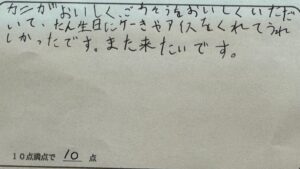 カニがおいしく、ごちそうをおいしくいただ
いて、たん生日にケーキやアイスをくれてうれ
しかったです。また来たいです。
10点満点で 10 点